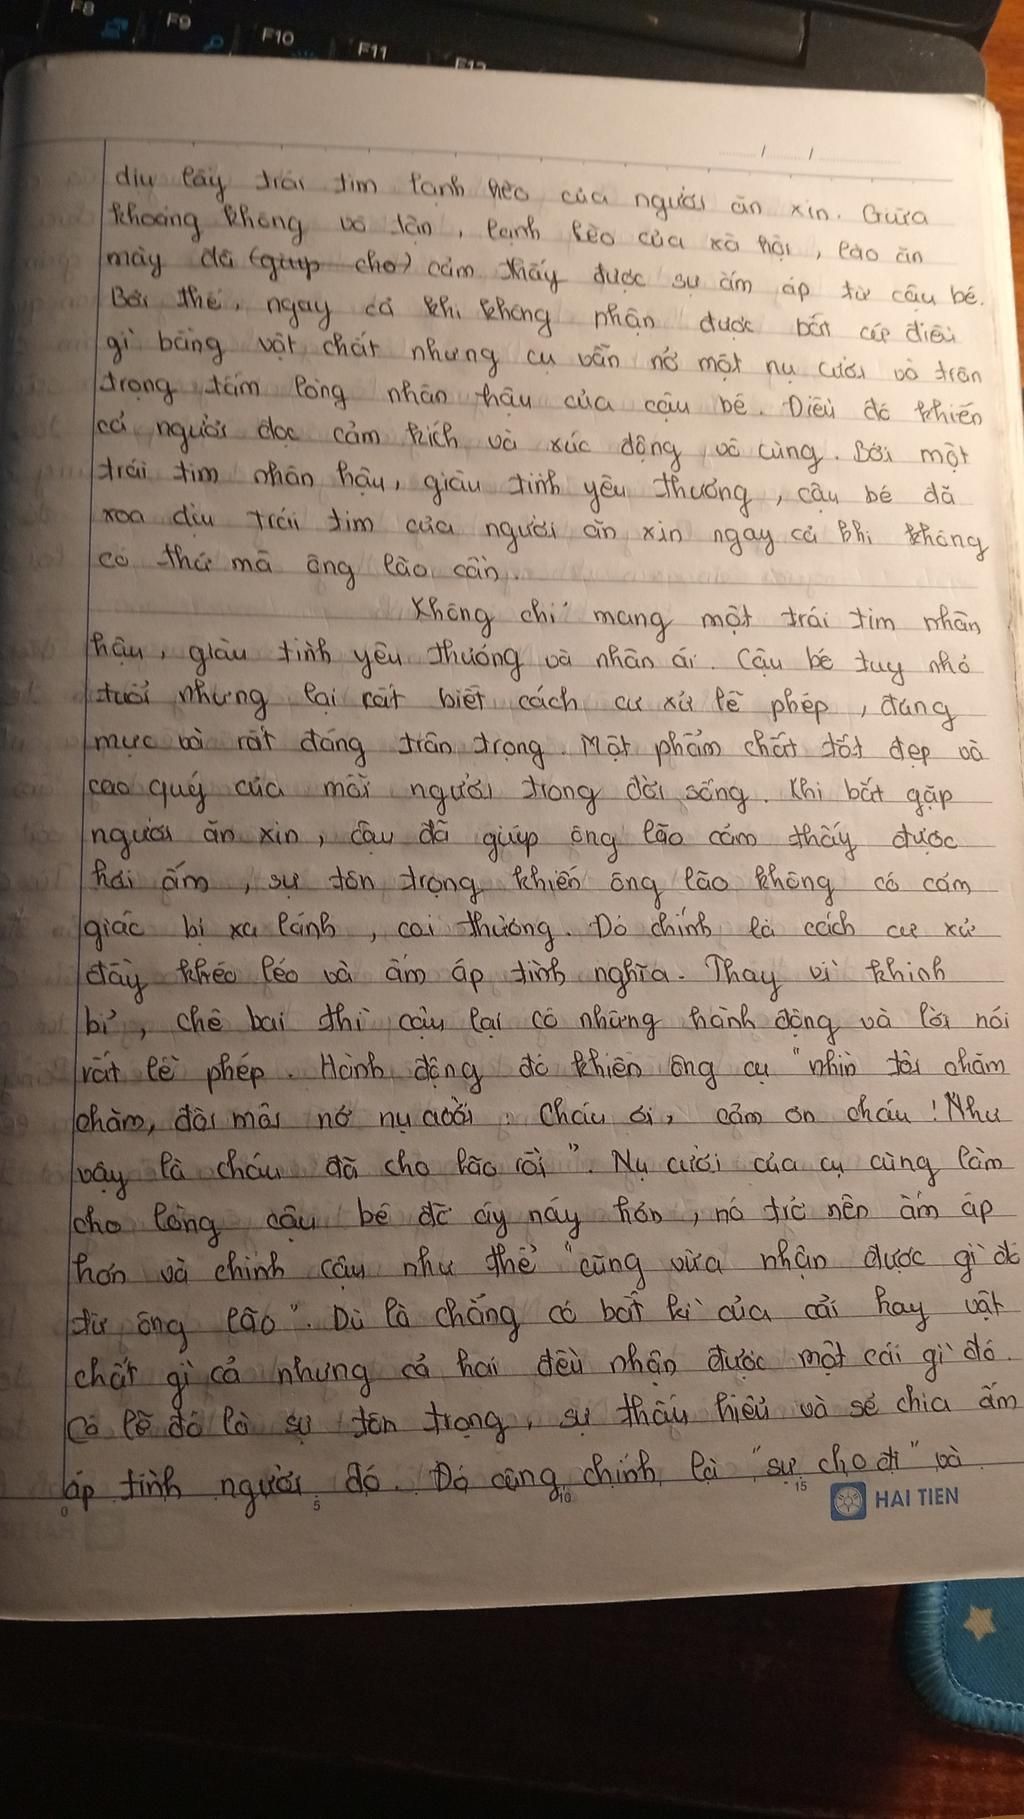 F8
F9
F10
F11
F12
/ /
dịu lấy trái tim lạnh lẽo của người ăn xin. Giữa
khoảng không vô tận, lạnh lẽo của xã hội, lão ăn
mày đã (giúp cho) cảm thấy được sự ấm áp từ cậu bé.
Bởi thế, ngay cả khi không nhận được bất cứ điều
gì bằng vật chất nhưng cụ vẫn nở một nụ cười và trân
trọng tấm lòng nhân hậu của cậu bé. Điều đó khiến
cả người đọc cảm kích và xúc động vô cùng. Bởi một
trái tim nhân hậu, giàu tình yêu thương, cậu bé đã
xoa dịu trái tim của người ăn xin ngay cả khi không
có thứ mà ông lão cần.
Không chỉ mang một trái tim nhân
hậu, giàu tình yêu thương và nhân ái. Cậu bé tuy nhỏ
tuổi nhưng lại rất biết cách cư xử lễ phép, đúng
mực và rất đáng trân trọng. Một phẩm chất tốt đẹp và
cao quý của mỗi người trong đời sống. Khi bắt gặp
người ăn xin, cậu đã giúp ông lão cảm thấy được
hơi ấm, sự tôn trọng khiến ông lão không có cảm
giác bị xa lánh, coi thường. Đó chính là cách cư xử
đầy khéo léo và ấm áp tình nghĩa. Thay vì khinh
bỉ, chê bai thì cậu lại có những hành động và lời nói
rất lễ phép. Hành động đó khiến ông cụ "nhìn tôi chăm
chăm, đôi môi nở nụ cười: Cháu ơi, cảm ơn cháu! Như
vậy là cháu đã cho lão rồi". Nụ cười của cụ cũng làm
cho lòng cậu bé đỡ áy náy hơn, nó trở nên ấm áp
hơn và chính cậu như thể "cũng vừa nhận được gì đó
từ ông lão". Dù là chẳng có bất kì của cải hay vật
chất gì cả nhưng cả hai đều nhận được một cái gì đó.
Có lẽ đó là sự tôn trọng, sự thấu hiểu và sẻ chia ấm
áp tình người đó. Đó cũng chính là "sự cho đi" và
0 5 10 15
HAI TIEN